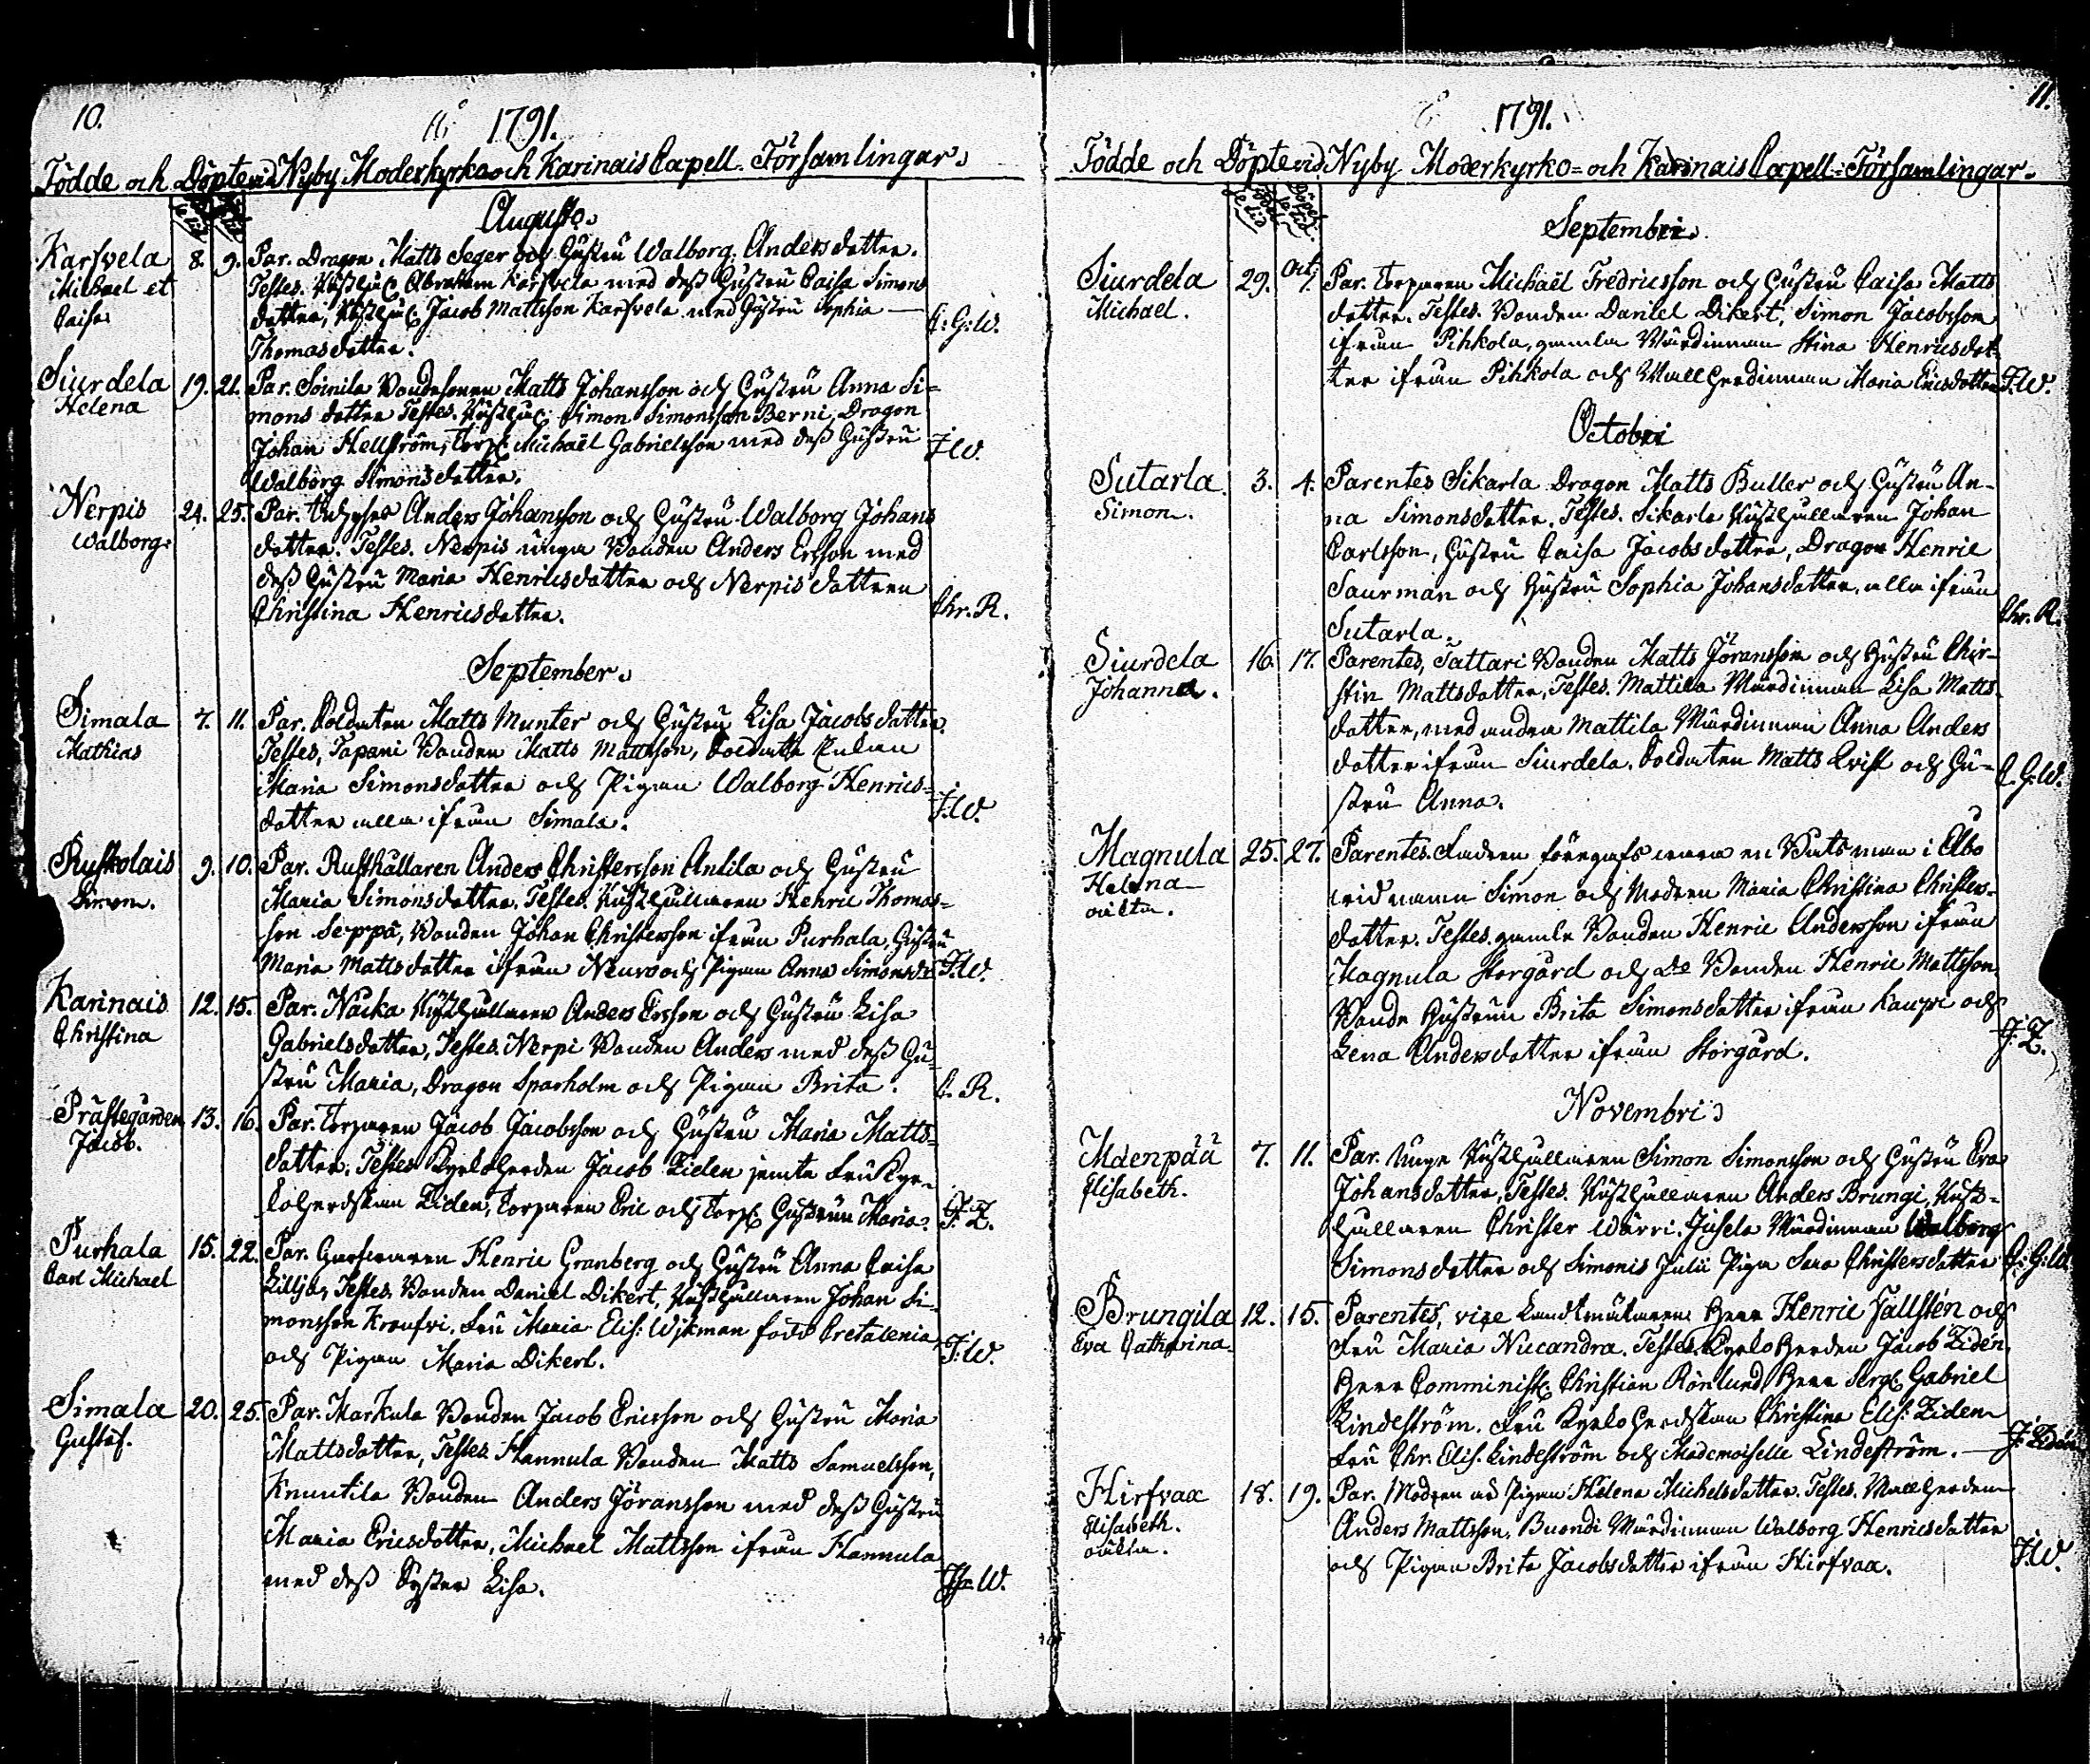 10.
1791.
Födde och Döpte vid Nyby Moderkyrko och Karinais Capell-Församlingar.
Augusto.
Karfvela 8. 9. Par. Dragon Matts Seger och Hustru Walborg Andersdotter.
Michael et Testes. Rusthåll: Abraham Karfvela med dess Hustru Caisa Simons
Caisa dotter, Rusthåll: Jacob Mattsson Karfvela med Hustru Sophia
Thomasdotter. C:G:W.
Siurdela 19. 21. Par. Soinila Bondesonen Matts Johansson och Hustru Anna Si-
Helena monsdotter Testes. Rusthåll: Simon Simonsson Berni, Dragon
Johan Hellström, Torp: Michaël Gabrielsson med dess Hustru J.W.
Walborg Simonsdotter.
Nerpis 24. 25. Par. Anders Johansson och Hustru Walborg Johans
Walborg. dotter. Testes. Nerpis unga Bonden Anders Ersson med
dess Hustru Maria Henricsdotter och Nerpis dottren
Christina Henricsdotter. Chr. R.
September.
Simala 7. 11. Par. Soldaten Matts Munter och Hustru Lisa Jacobsdotter.
Mathias Testes, Tapani Bonden Matts Mattsson, Soldats Enkan
Maria Simonsdotter och Pigan Walborg Henrics-
dotter alla ifrån Simala. J.W.
Ruskolais 9. 10. Par. Rusthållaren Anders Christersson Antila och Hustru
Simon. Maria Simonsdotter. Testes. Rusthållaren Henric Thomas-
son Seppä, Bonden Johan Christersson ifrån Purhala, Hustru
Maria Mattsdotter ifrån och Pigan Anna Simonsdr J.W.
Karinais 12. 15. Par. Näcka Rusthållaren Anders Ersson och Hustru Lisa
Christina Gabrielsdotter, Testes. Nerpi Bonden Anders med dess Hu-
stru Maria, Dragon Sparholm och Pigan Brita. C. R.
Prästegården 13. 16. Par. Torparen Jacob Jacobsson och Hustru Maria Matts-
Jacob. dotter. Testes Kyrkoherden Jacob Ziden jemte Fru Kyr-
koherdskan Ziden, Torparen Eric och Torp: Hustrun Maria. J: Z.
Purhala 15. 22. Par. Henric Granberg och Hustru Anna Caisa
Carl Michael Lillja, Testes. Bonden Daniel Dikert, Rusthållaren Johan Si-
monsson Kroufvi, Fru Maria Elis: Wikman född Cretalenia
och Pigan Maria Dikert. J:W.
Simala 20. 25. Par. Markula Bonden Jacob Ericsson och Hustru Maria
Gustaf. Mattsdotter, Testes Hannula Bonden Matts Samuelsson,
Knuutila Bonden Anders Jöransson med dess Hustru
Maria Ericsdotter, Michael Mattsson ifrån Hannula
med dess Syster Lisa. W.
11.
1791.
Födde och Döpte vid Nyby Moderkyrko- och Karinais Capell-Församlingar.
Födelse tid Döpelse tid.
Septembri.
Siurdela 29. Oct. 1. Par. Torparen Michaël Fredricsson och Hustru Caisa Matts
Michael. dotter. Testes. Bonden Daniel Dikert, Simon Jacobsson
ifrån Pihkola, gamla Värdinnan Stina Henricsdot-
ter ifrån Pihkola och Wallherdinnan Maria Ericsdotter J:W.
Octobri
Sutarla. 3. 4. Parentes Sikarla Dragon Matts Buller och Hustru An-
Simon. na Simonsdotter. Testes. Sikarla Rusthållaren Johan
Carlsson, Hustru Caisa Jacobsdotter, Dragon Henric
Saurman och Hustru Sophia Johansdotter, alla ifrån
Sutarla. Chr. R.
Siurdela 16. 17. Parentes, Tattari Bonden Matts Jöransson och Hustru Chir-
Johanna. stin Mattsdotter, Testes. Mattila Värdinnan Lisa Matts-
dotter, med andra Mattila Värdinnan Anna Anders
dotter ifrån Siurdela. Soldaten Matts Qvist och Hu-
stru Anna. C.G:W.
Magnula 25. 27. Parentes. Fadren föregafs vara en Båtsman i Åbo
Helena vid namn Simon och Modren Maria Christina Christers-
oäkta. dotter. Testes. gamle Bonden Henric Andersson ifrån
Magnula Storgård och Bonden Henric Mattsson
Bonde Hustrun Brita Simonsdotter ifrån Kaupi och
Lena Andersdotter ifrån Storgård. J: Z.
Novembri
Mäenpää 7. 11. Par. Unge Rusthållaren Simon Simonsson och Hustru Eva
Elisabeth. Johansdotter, Testes. Rusthållaren Anders Brungi, Rust-
hållaren Christer Wärri. Jusela Värdinnan Walborg
Simonsdotter och Simonis Julii Piga Sara Christersdotter C:G:W.
Brungila 12. 15. Parentes, vice Landtmätaren Herr Henric Fallstén och
Eva Catharina. Fru Maria Nucandra. Testes. Kyrkoherden Jacob Zidén,
Herr Comminist: Christian Rönlund, Herr Serg: Gabriel
Lindeström. Fru Kyrkoherdskan Christina Elis: Ziden
Fru Chr. Elis. Lindeström och Mademoiselle Lindeström. J: Zidén
Hirfvax 18. 19. Par. Modren är Pigan Helena Michelsdotter. Testes. Wallherden
Elisabeth. Anders Mattsson, Buondi Värdinnan Walborg Henricsdotter
oäkta. och Pigan Brita Jacobsdotter ifrån Hirfvax. J:W.